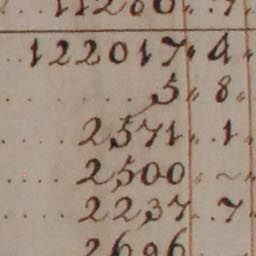 122017 " 4 "
5 " 8 "
2571 " 1 "
2500 " ~ "
2237 " 7 "
2696